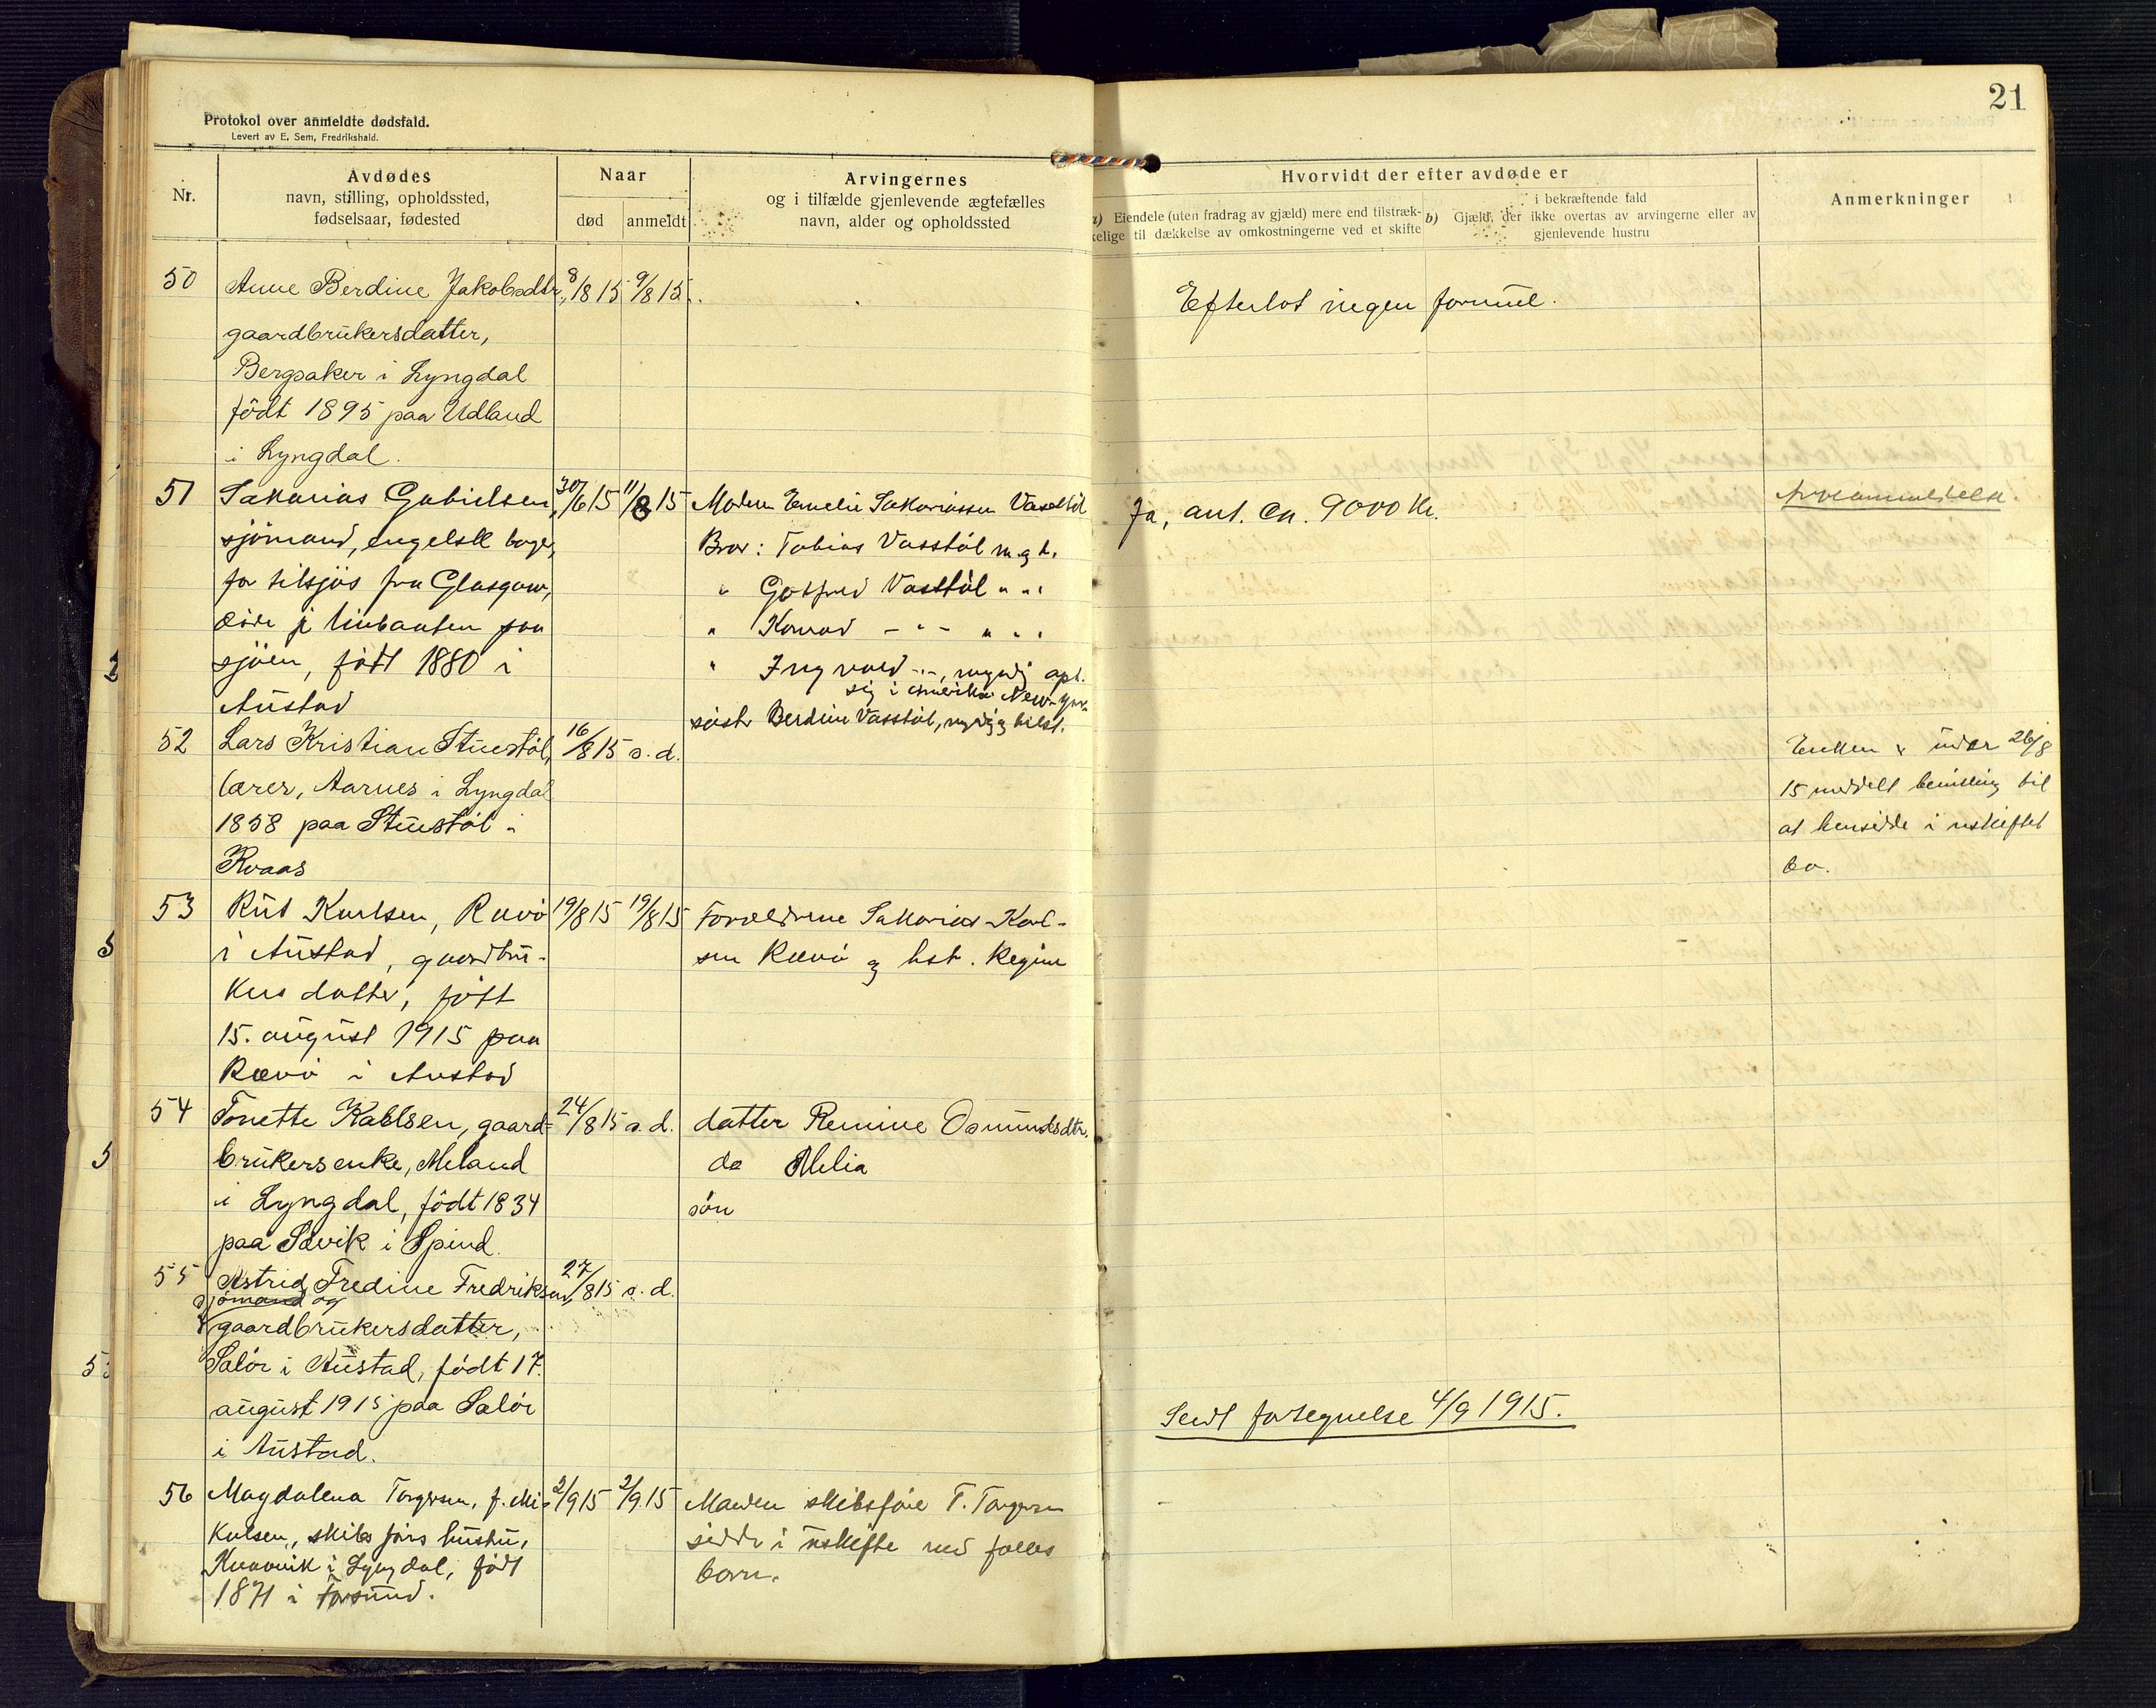 21
Protokol over anmeldte dødsfald.
Levert av E. Sem, Fredrikshald.
Nr.
Avdødes
navn, stilling, opholdssted,
fødselsaar, fødested
Naar
død
anmeldt
Arvingernes
og i tilfælde gjenlevende ægtefælles
navn, alder og opholdssted
Hvorvidt der efter avdøde er
a) Eiendele (uten fradrag av gjæld) mere end tilstræk-
kelige til dækkelse av omkostningerne ved et skifte
b) Gjæld, der i bekræftende fald
ikke overtas av arvingerne eller av
gjenlevende hustru
Anmerkninger
50 Anne Berdine Jakobsdtr., 8/8 15 9/8 15. Efterlot ingen formue.
gaardbrukersdatter,
Bergsaker i Lyngdal
født 1895 paa Udland
i Lyngdal.
51 Sakarias Gabrielsen, 30/6 15 11/8 15 Moderen Emelie Sakariassen Vasstøl Ja, ant. ca. 9000 Kr.
sjömand, engelsk
Bror: Tobias Vasstöl m.g.t.
for tilsjös fra Glasgow,
" Gotfred Vasstöl " " "
döde paa
" Konrad - " - " " "
sjöen, født 1880 i
" Ingvald - " -, myndig opl.
sig i Amerika New-York
Austad
søster Berdine Vasstöl, myndig
52 Lars Kristian Stuestøl, 16/8 15 s.d.
Enken er under 26/8
lærer, Aarnes i Lyngdal
15 meddelt bevilling til
1858 paa Stuestøl i
at hensidde i uskiftet
Kvaas
bo.
53 Rut Karlsen, Rævø 19/8 15 19/8 15 Forældrene Sakarias Karl-
i Austad, gaardbru-
sen Rævø og hst. Regine
kersdatter, født
15. august 1915 paa
Rævø i Austad
54 Tonette Kablsen, gaard- 24/8 15 s.d. datter Remine Osmundsdtr.
brukersenke, Meland
do Melia
i Lyngdal, født 1834
søn
paa Søvik i Spind.
55 Astrid Fredine Fredriksen, 27/8 15 s.d.
sjömand og
gaardbrukersdatter,
Salör i Austad, født 17.
august 1915 paa Salör
Sendt fortegnelse 4/9 1915.
i Austad.
56 Magdalena Torgersen, f. Mi- 2/9 15 2/9 15 Manden skibsfører T. Torgersen
kalsen, skibsførers hustru,
sidder i uskifte med fælles
Kvavik i Lyngdal, født
børn.
1871 i Farsund.